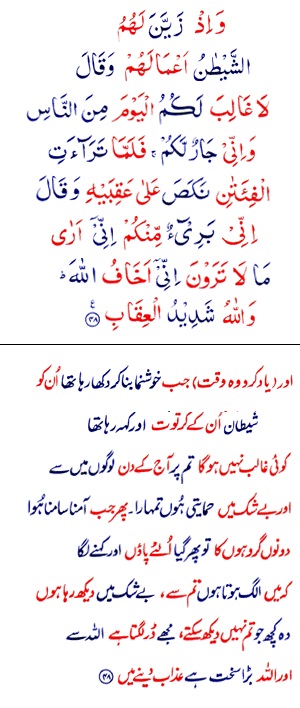 وَاِذْ زَيَّنَ لَهُمُ
الشَّيْطٰنُ اَعْمَالَهُمْ وَقَالَ
لَا غَالِبَ لَكُمُ الْيَوْمَ مِنَ النَّاسِ
وَاِنِّىْ جَارٌ لَّكُمْ ۚ فَلَمَّا تَرَآءَتِ
الْفِئَتٰنِ نَكَصَ عَلٰى عَقِبَيْهِ وَقَالَ
اِنِّىْ بَرِىْٓءٌ مِّنْكُمْ اِنِّىْٓ اَرٰى
مَا لَا تَرَوْنَ اِنِّىْٓ اَخَافُ اللّٰهَ ؕ
وَاللّٰهُ شَدِيْدُ الْعِقَابِ ﴿۴۸﴾
اور (یاد کرو وہ وقت) جب خوشنما بنا کر دکھا رہا تھا اُن کو
شیطان اُن کے کرتوت اور کہہ رہا تھا
کوئی غالب نہیں ہوگا تم پر آج کے دن لوگوں میں سے
اور بے شک میں حمایتی ہُوں تمہارا۔ پھر جب آمنا سامنا ہُوا
دونوں گروہوں کا تو پھر گیا اُلٹے پاؤں اور کہنے لگا
کہ میں الگ ہوتا ہوں تم سے، بے شک میں دیکھ رہا ہوں
وہ کچھ جو تم نہیں دیکھ سکتے، مجھے ڈر لگتا ہے اللہ سے
اور اللہ بڑا سخت ہے عذاب دینے میں ﴿۴۸﴾